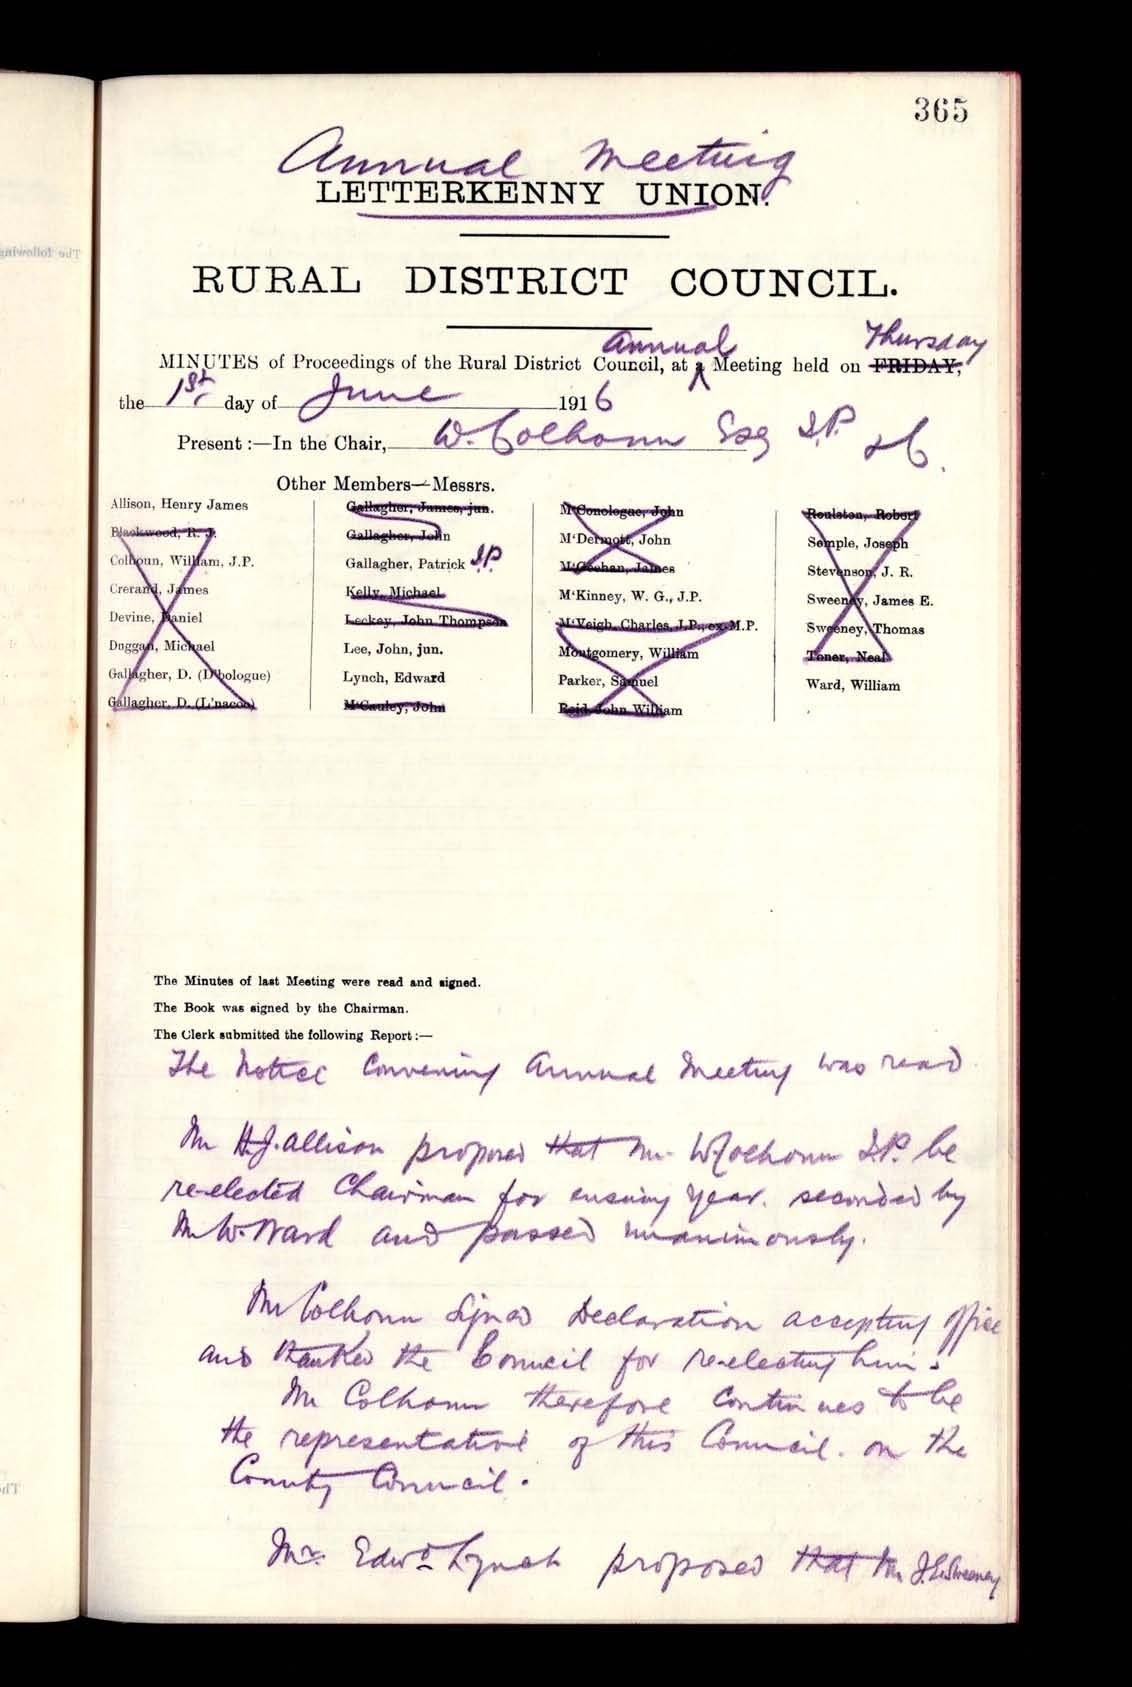 365
Annual Meeting
LETTERKENNY UNION.
RURAL DISTRICT COUNCIL.
Annual Thursday
MINUTES of Proceedings of the Rural District Council, at a Meeting held on FRIDAY,
the 1st day of June 1916
Present :—In the Chair, W. Colhoun Esq J.P. Co. C.
Other Members—Messrs.
Allison, Henry James
Blackwood, R. J.
Colhoun, William, J.P.
Crerand, James
Devine, Daniel
Duggan, Michael
Gallagher, D. (D'bologue)
Gallagher, D. (L'nacoo)
Gallagher, James, jun.
Gallagher, John
Gallagher, Patrick J.P.
Kelly, Michael
Leckey, John Thompson
Lee, John, jun.
Lynch, Edward
M'Cauley, John
M'Conologue, John
M'Dermott, John
M'Geehan, James
M'Kinney, W. G., J.P.
M'Veigh, Charles, J.P., ex-M.P.
Montgomery, William
Parker, Samuel
Reid, John William
Roulston, Robert
Semple, Joseph
Stevenson, J. R.
Sweeney, James E.
Sweeney, Thomas
Toner, Neal
Ward, William
The Minutes of last Meeting were read and signed.
The Book was signed by the Chairman.
The Clerk submitted the following Report :—
The Notice convening Annual Meeting was read
Mr H.J. Allison proposed that Mr W Colhoun J.P. be
re-elected Chairman for ensuing year. seconded by
Mr W. Ward and passed unanimously.
Mr Colhoun signed Declaration accepting office
and thanked the Council for re-electing him.
Mr Colhoun therefore continues to be
the representative of this Council on the
County Council.
Mr. Edwd Lynch proposed that Mr J.E. Sweeney